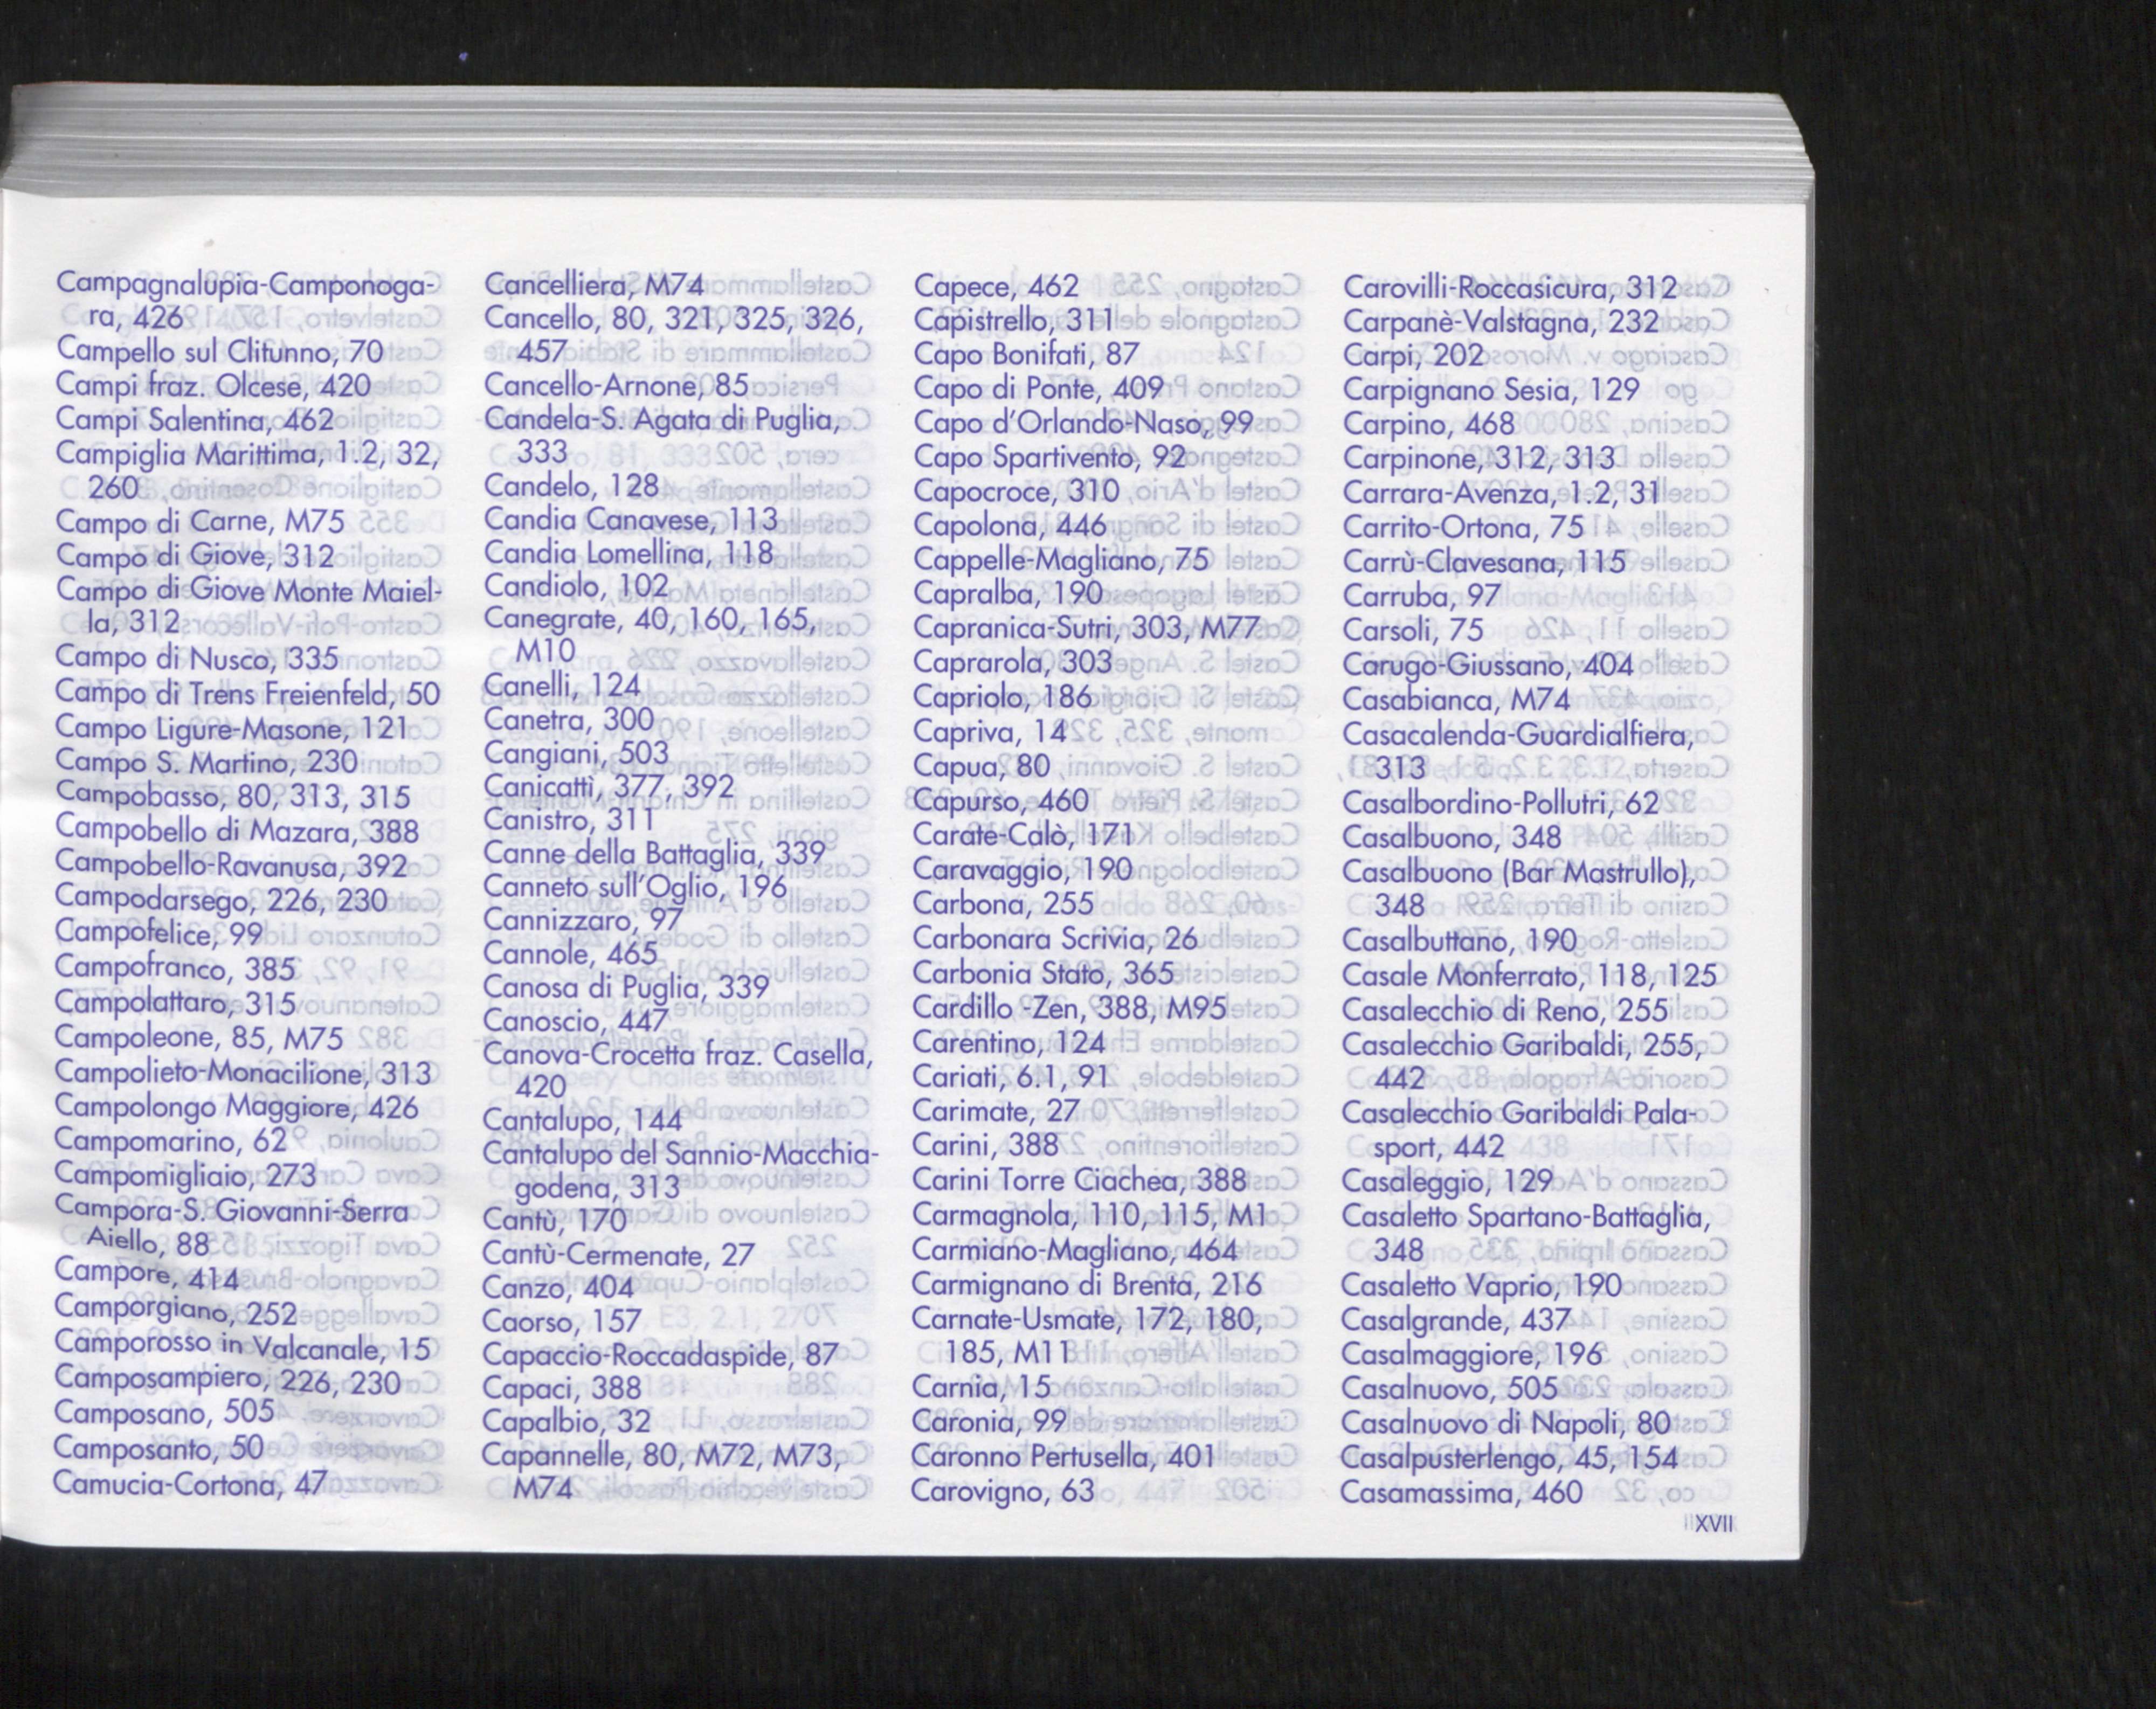 Campagnalupia-Camponoga-
ra, 426
Campello sul Clitunno, 70
Campi fraz. Olcese, 420
Campi Salentina, 462
Campiglia Marittima, 1.2, 32,
260
Campo di Carne, M75
Campo di Giove, 312
Campo di Giove Monte Maiel-
la, 312
Campo di Nusco, 335
Campo di Trens Freienfeld, 50
Campo Ligure-Masone, 121
Campo S. Martino, 230
Campobasso, 80, 313, 315
Campobello di Mazara, 388
Campobello-Ravanusa, 392
Campodarsego, 226, 230
Campofelice, 99
Campofranco, 385
Campolattaro, 315
Campoleone, 85, M75
Campolieto-Monacilione, 313
Campolongo Maggiore, 426
Campomarino, 62
Campomigliaio, 273
Campora-S. Giovanni-Serra
Aiello, 88
Campore, 414
Camporgiano, 252
Camporosso in Valcanale, 15
Camposampiero, 226, 230
Camposano, 505
Camposanto, 50
Camucia-Cortona, 47
Cancelliera, M74
Cancello, 80, 321, 325, 326,
457
Cancello-Arnone, 85
Candela-S. Agata di Puglia,
333
Candelo, 128
Candia Canavese, 113
Candia Lomellina, 118
Candiolo, 102
Canegrate, 40, 160, 165,
M10
Canelli, 124
Canetra, 300
Cangiani, 503
Canicattì, 377, 392
Canistro, 311
Canne della Battaglia, 339
Canneto sull'Oglio, 196
Cannizzaro, 97
Cannole, 465
Canosa di Puglia, 339
Canoscio, 447
Canova-Crocetta fraz. Casella,
420
Cantalupo, 144
Cantalupo del Sannio-Macchia-
godena, 313
Cantù, 170
Cantù-Cermenate, 27
Canzo, 404
Caorso, 157
Capaccio-Roccadaspide, 87
Capaci, 388
Capalbio, 32
Capannelle, 80, M72, M73,
M74
Capece, 462
Capistrello, 311
Capo Bonifati, 87
Capo di Ponte, 409
Capo d'Orlando-Naso, 99
Capo Spartivento, 92
Capocroce, 310
Capolona, 446
Cappelle-Magliano, 75
Capralba, 190
Capranica-Sutri, 303, M77
Caprarola, 303
Capriolo, 186
Capriva, 14
Capua, 80
Capurso, 460
Carate-Calò, 171
Caravaggio, 190
Carbona, 255
Carbonara Scrivia, 26
Carbonia Stato, 365
Cardillo -Zen, 388, M95
Carentino, 124
Cariati, 6.1, 91
Carimate, 27
Carini, 388
Carini Torre Ciachea, 388
Carmagnola, 110, 115, M1
Carmiano-Magliano, 464
Carmignano di Brenta, 216
Carnate-Usmate, 172, 180,
185, M11
Carnia, 15
Caronia, 99
Caronno Pertusella, 401
Carovigno, 63
Carovilli-Roccasicura, 312
Carpanè-Valstagna, 232
Carpi, 202
Carpignano Sesia, 129
Carpino, 468
Carpinone, 312, 313
Carrara-Avenza, 1.2, 31
Carrito-Ortona, 75
Carrù-Clavesana, 115
Carruba, 97
Carsoli, 75
Carugo-Giussano, 404
Casabianca, M74
Casacalenda-Guardialfiera,
313
Casalbordino-Pollutri, 62
Casalbuono, 348
Casalbuono (Bar Mastrullo),
348
Casalbuttano, 190
Casale Monferrato, 118, 125
Casalecchio di Reno, 255
Casalecchio Garibaldi, 255,
442
Casalecchio Garibaldi Pala-
sport, 442
Casaleggio, 129
Casaletto Spartano-Battaglia,
348
Casaletto Vaprio, 190
Casalgrande, 437
Casalmaggiore, 196
Casalnuovo, 505
Casalnuovo di Napoli, 80
Casalpusterlengo, 45, 154
Casamassima, 460
XVII